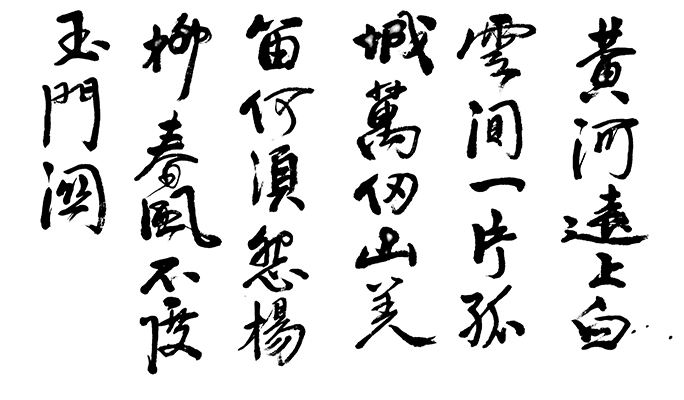 黃河遠上白
雲間一片孤
城萬仞山羌
笛何須怨楊
柳春風不度
玉門關